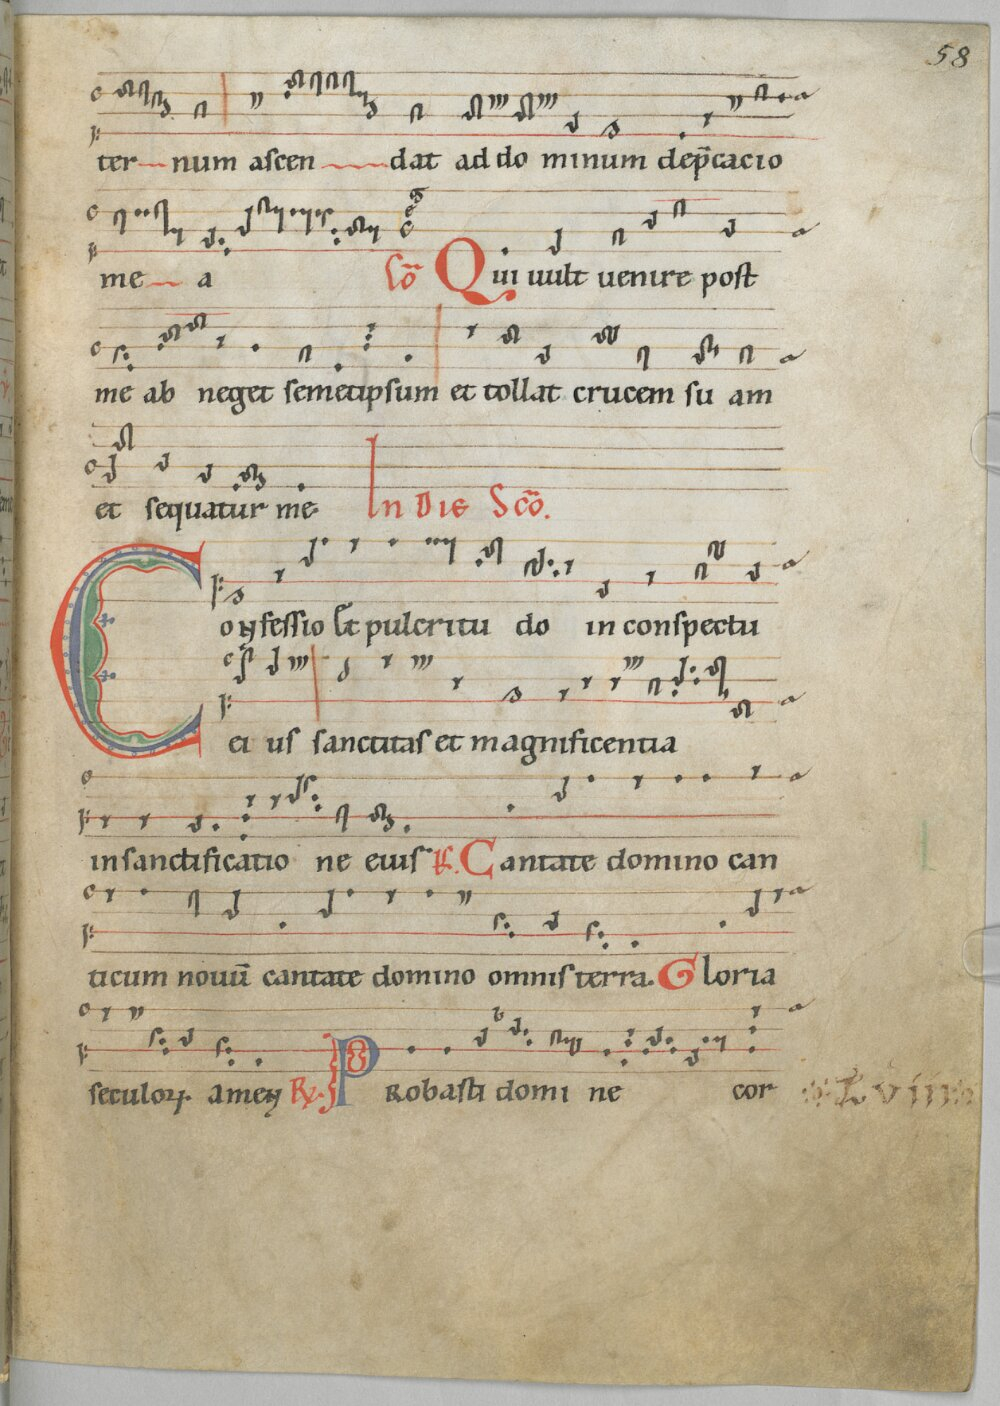 58
ter num ascen dat ad do minum dep̄cacio
me a Cō Qui uult uenire post
me ab neget semetipsum et tollat crucem su am
et sequatur me· In Die Scō.
Confessio & pulcritu do in conspectu
ei us sanctitas et magnificentia
in sanctificatio ne eius Ps. Cantate domino can
ticum nouū cantate domino omnis terra. Gloria
seculoꝝ amen ℟. Probasti domi ne cor
Lviii